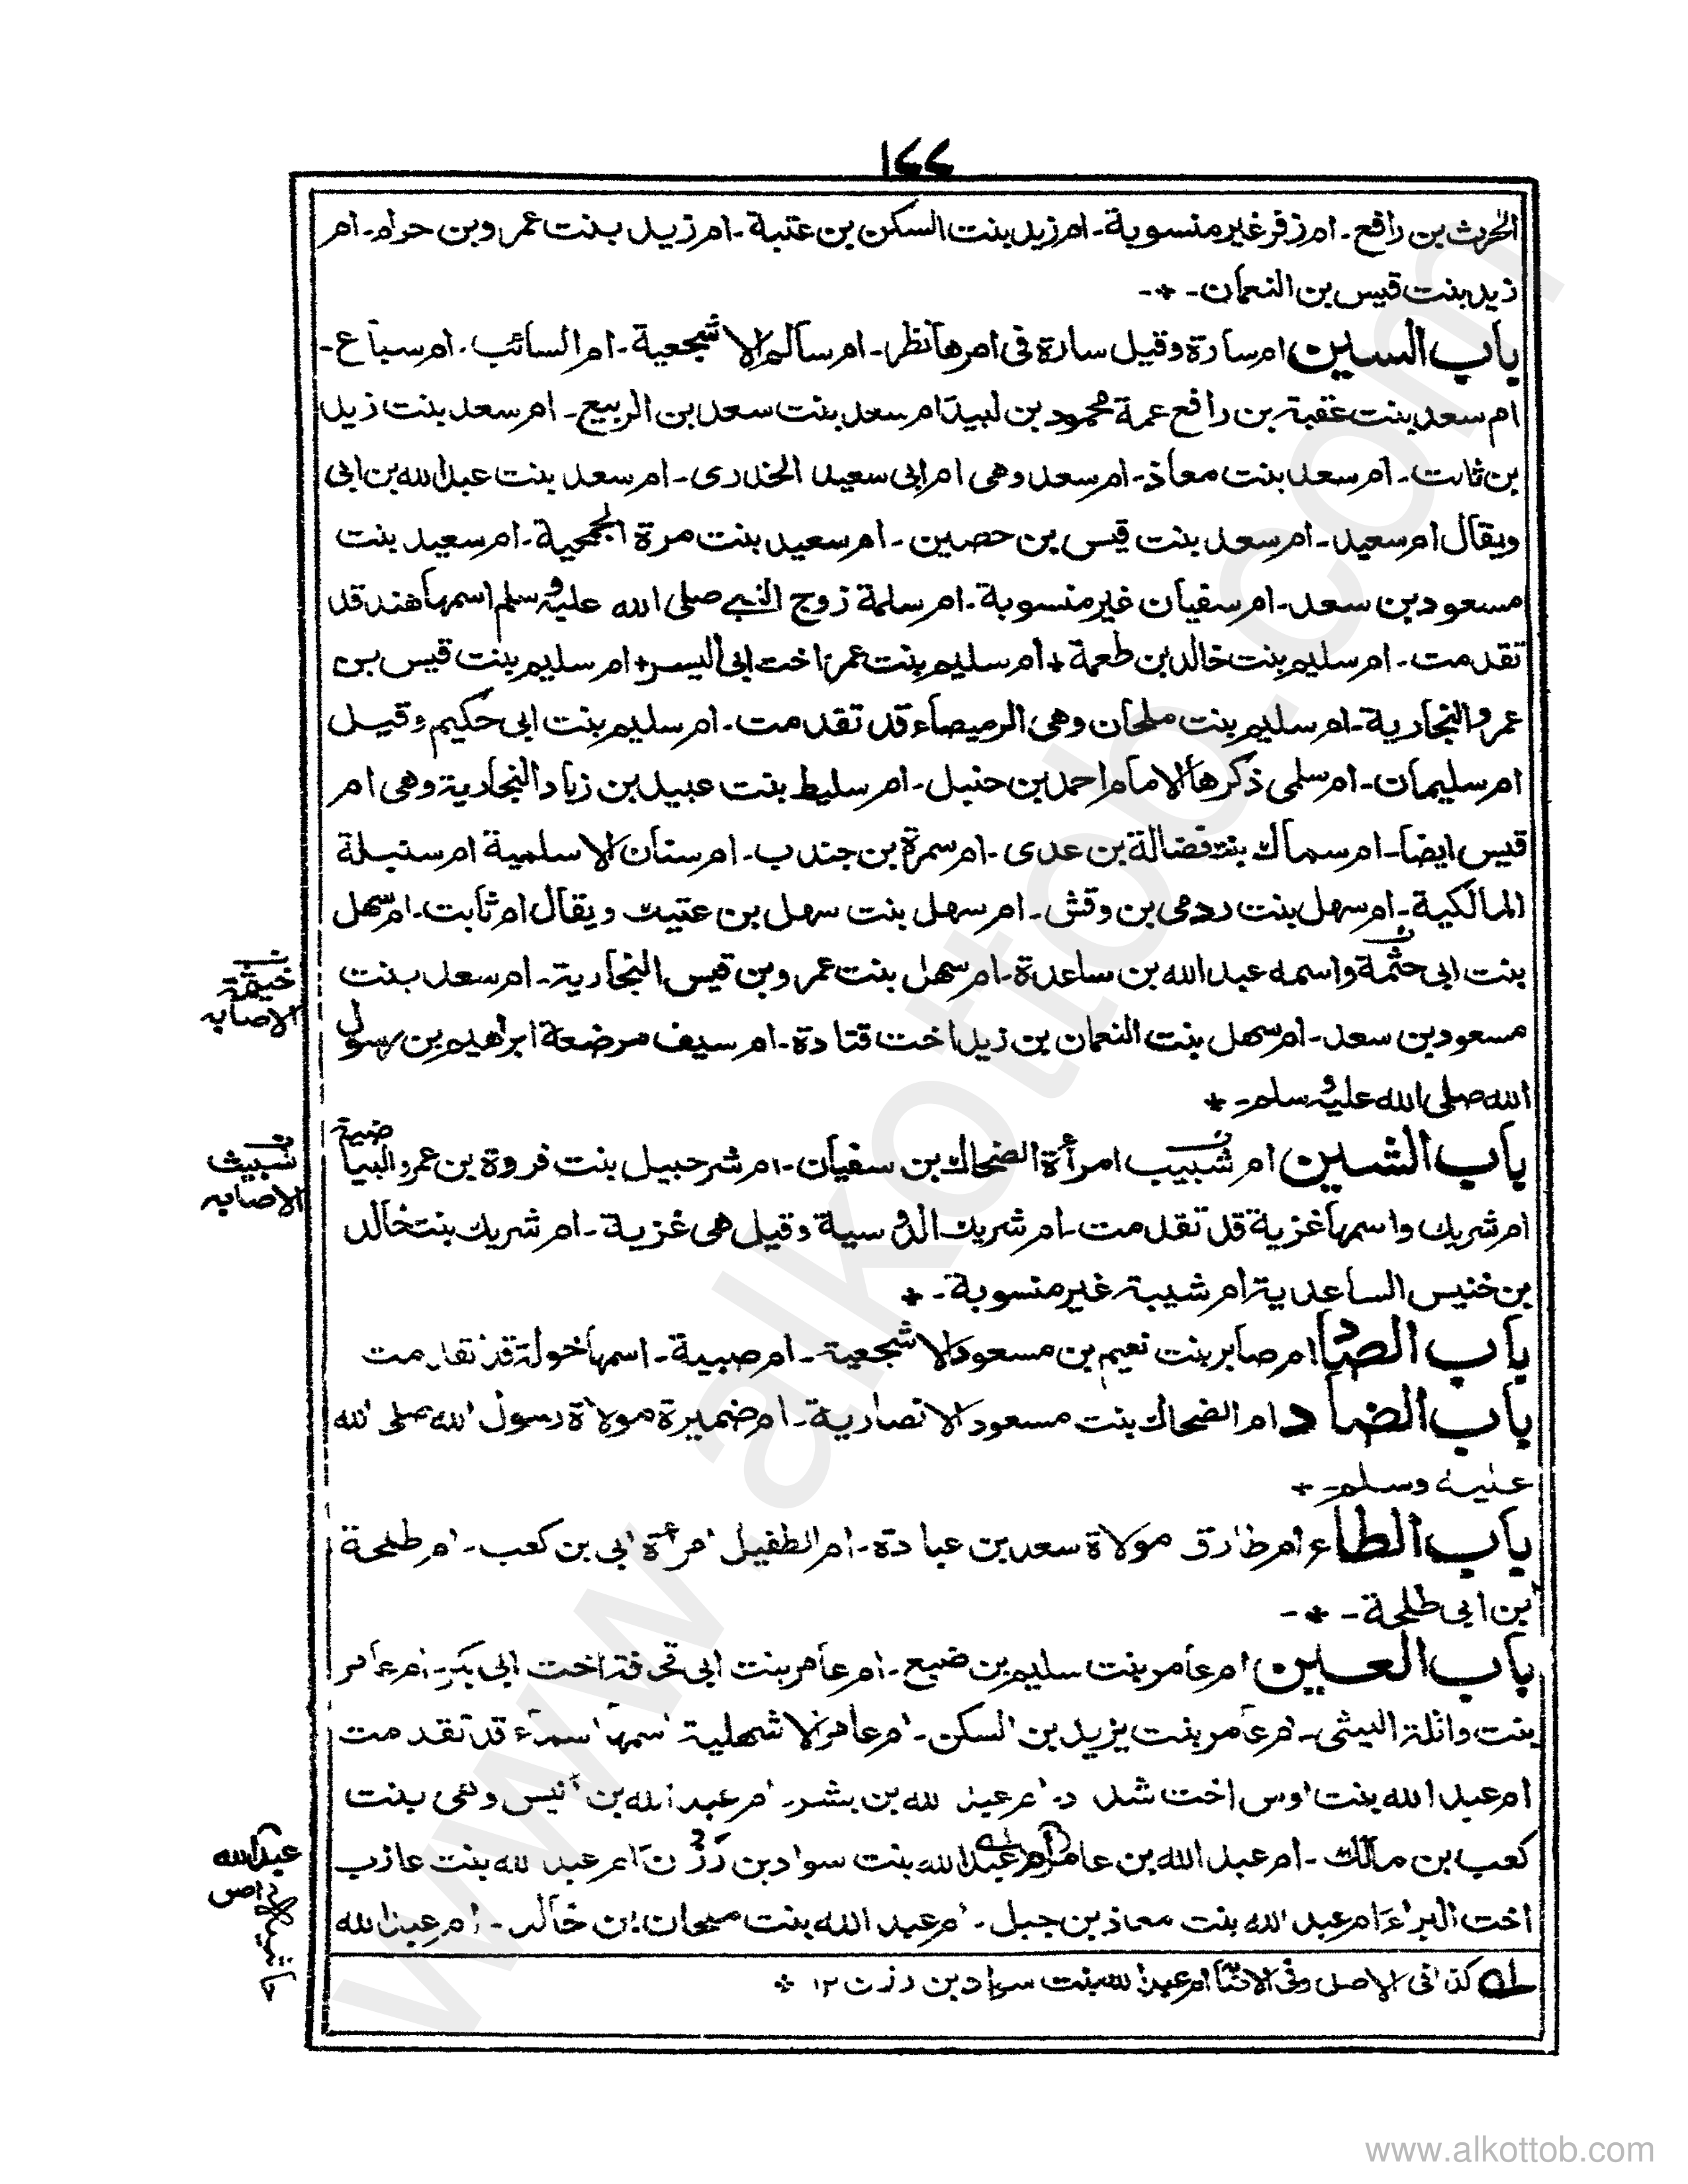 ١٧٧
الحرث بن رافع - ام زفر غير منسوبة - ام زيد بنت السكن بن عتبة - ام زيد بنت عمر وبن حرام - ام
زيد بنت قيس بن النعمان - * -
باب السين ام سارة وقيل سارة فى امرها نظر - ام سالم الاشجعية - ام السائب - ام سباع -
ام سعد بنت عقبة بن رافع عمة محمود بن لبيد ام سعد بنت سعد بن الربيع - ام سعد بنت زيد
بن ثابت - ام سعد بنت معاذ - ام سعد وهى ام ابى سعيد الخدرى - ام سعد بنت عبد الله بن ابى
ويقال ام سعيد - ام سعد بنت قيس بن حصين - ام سعيد بنت مرة الجمحية - ام سعيد بنت
مسعود بن سعد - ام سفيان غير منسوبة - ام سلمة زوج النبى صلى الله عليه وسلم اسمها هند قد
تقدمت - ام سليم بنت خالد بن طعمة * ام سليم بنت عمرو اخت ابى اليسر * ام سليم بنت قيس بن
عمرو النجارية - ام سليم بنت ملحان وهى الرميصاء قد تقدمت - ام سليم بنت ابى حكيم وقيل
ام سليمان - ام سلمى ذكرها الامام احمد بن حنبل - ام سليط بنت عبيد بن زياد النجارية وهى ام
قيس ايضا - ام سماك بنت فضالة بن عدى - ام سمرة بن جندب - ام سنان الاسلمية ام سنبلة
المالكية - ام سهل بنت رومى بن وقش - ام سهل بنت سهل بن عتيك ويقال ام ثابت - ام سهل
بنت ابى حثمة واسمه عبد الله بن ساعدة - ام سهل بنت عمر وبن قيس النجارية - ام سعد بنت
خيثمة
الاصابه
مسعود بن سعد - ام سهل بنت النعمان بن زيد اخت قتادة - ام سيف مرضعة ابراهيم بن رسول
الله صلى الله عليه وسلم - *
باب الشين ام شبيب امرأة الضحاك بن سفيان - ام شرحبيل بنت فروة بن عمرو البياضية
شبيث
الاصابه
ام شريك واسمها غزية قد تقدمت - ام شريك الدوسية وقيل هى غزية - ام شريك بنت خالد
بن خنيس الساعدية ام شيبة غير منسوبة - *
باب الصاد ام صابر بنت نعيم بن مسعود الاشجعية - ام صبية - اسمها خولة قد تقدمت
باب الضاد ام الضحاك بنت مسعود الانصارية - ام ضميرة مولاة رسول الله صلى الله
عليه وسلم - *
باب الطاء ام طارق مولاة سعد بن عبادة - ام الطفيل امرأة ابى بن كعب - ام طلحة
بن ابى طلحة - * -
باب العين ام عامر بنت سليم بن ضبع - ام عامر بنت ابى قحافة اخت ابى بكر - ام عامر
بنت واثلة الليثى - ام عامر بنت يزيد بن السكن - ام عامر الاشهلية اسمها اسماء قد تقدمت
ام عبد الله بنت اوس اخت شداد - ام عبد الله بن بشر - ام عبد الله بن انيس وهى بنت
كعب بن مالك - ام عبد الله بن عامر ام عبد الله بنت سواد بن رزن ام عبد الله بنت عازب
عبد الله
اخت البراء ام عبد الله بنت معاذ بن جبل - ام عبد الله بنت ملحان بن خالد - ام عبد الله
له كذا فى الاصل وفى الاصابة ام عبد الله بنت سواد بن رزن ١٢ *
www.alkottob.com
www.alkottob.com